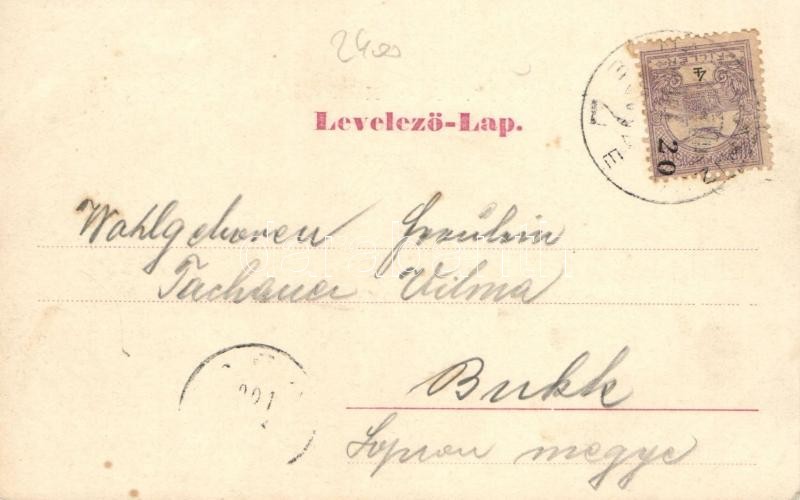 2400
Levelező-Lap.
20
4
Wohlgeboren Fräulein
Tachauer Vilma
Bukk
Sopron megye